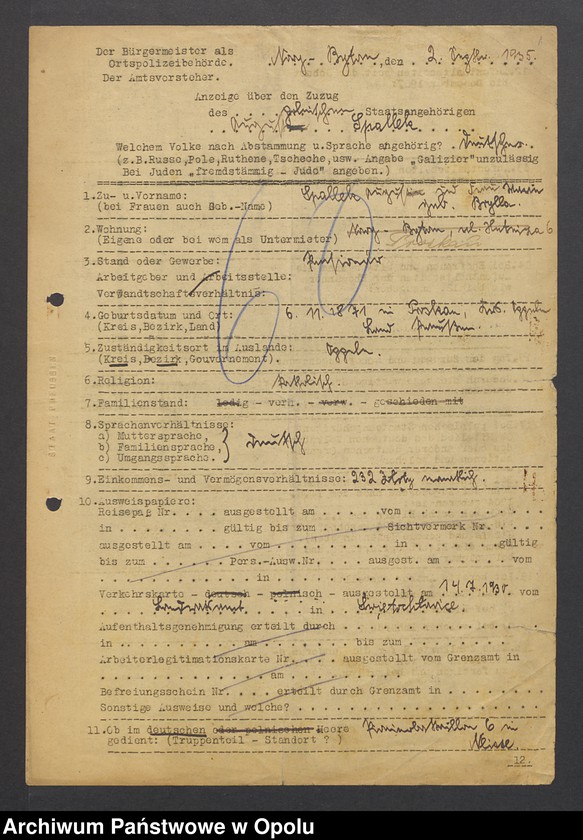 Der Bürgermeister als
Ortspolizeibehörde.
Der Amtsvorsteher.
den 2. Septbr. 1935
Anzeige über den Zuzug
des polnischen Staatsangehörigen
August Spallek
Welchem Volke nach Abstammung u.Sprache angehörig? Deutscher.
(z.B.Russe,Pole,Ruthene,Tscheche,usw. Angabe „Galizier" unzulässig
Bei Juden „fremdstämmig - Jude" angeben.)
1.Zu- u.Vorname: Spallek August und Frau
(bei Frauen auch Geb.-Name) geb.
2.Wohnung:
(Eigene oder bei wem als Untermieter) 6
3.Stand oder Gewerbe:
Arbeitgeber und Arbeitsstelle:
Verwandtschaftsverhältnis:
4.Geburtsdatum und Ort: 6.11.1871 in Proskau, Krs. Oppeln
(Kreis,Bezirk,Land) Land Preussen.
5.Zuständigkeitsort im Auslande: Oppeln.
(Kreis,Bezirk,Gouvernement).
6.Religion: katolisch.
7.Familienstand: ledig - verh. - verw. - geschieden mit
8.Sprachenverhältnisse:
a) Muttersprache,
b) Familiensprache, deutsch
c) Umgangssprache.
9.Einkommens- und Vermögensverhältnisse: 232 Zloty monatlich.
10.Ausweispapiere:
Reisepaß Nr. . . . . ausgestellt am . . . . .vom . . . . . .
in . . . . . . . . gültig bis zum . . . . . Sichtvermerk Nr. . . .
ausgestellt am . . . . vom . . . . . . . . in . . . . . . .gültig
bis zum . . . . . Pers.-Ausw.Nr. . . . . ausgest. am . . . . . vom
. . . . . . . . . . in . . . . . . . . . .
Verkehrskarte - deutsch - polnisch - ausgestellt am 14.7.1930 vom
Landratsamt in
Aufenthaltsgenehmigung erteilt durch . . . . . . . . . . . . .
in . . . . . . . . . . am . . . . . . . bis zum . . . . . . . .
Arbeiterlegitimationskarte Nr. . . . . ausgestellt vom Grenzamt in
. . . . . . . . . . . . am . . . . . . . .
Befreiungsschein Nr. . . . . erteilt durch Grenzamt in . . . . . . .
Sonstige Ausweise und welche? . . . . . . . . . . . . . . . . .
11.Ob im deutschen oder polnischen Heere Pionierbataillon 6 in
gedient: (Truppenteil - Standort ? ) Neisse.
12.
Archiwum Państwowe w Opolu